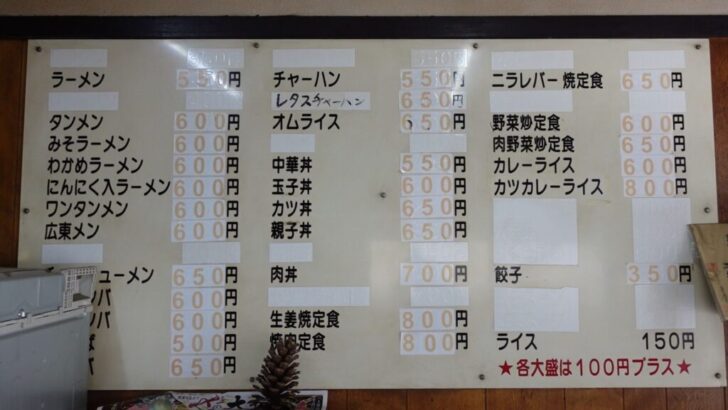 ラーメン 550円
タンメン 600円
みそラーメン 600円
わかめラーメン 600円
にんにく入ラーメン 600円
ワンタンメン 600円
広東メン 600円
ューメン 650円
ンバ 600円
ンバ 600円
ば 500円
バ 650円
チャーハン 550円
レタスチャーハン 650
オムライス 650円
中華丼 550円
玉子丼 600円
カツ丼 650円
親子丼 650円
肉丼 700円
生姜焼定食 800円
焼肉定食 800円
ニラレバー焼定食 650円
野菜炒定食 600円
肉野菜炒定食 650円
カレーライス 600円
カツカレーライス 800円
餃子 350円
ライス 150円
★各大盛は100円プラス★